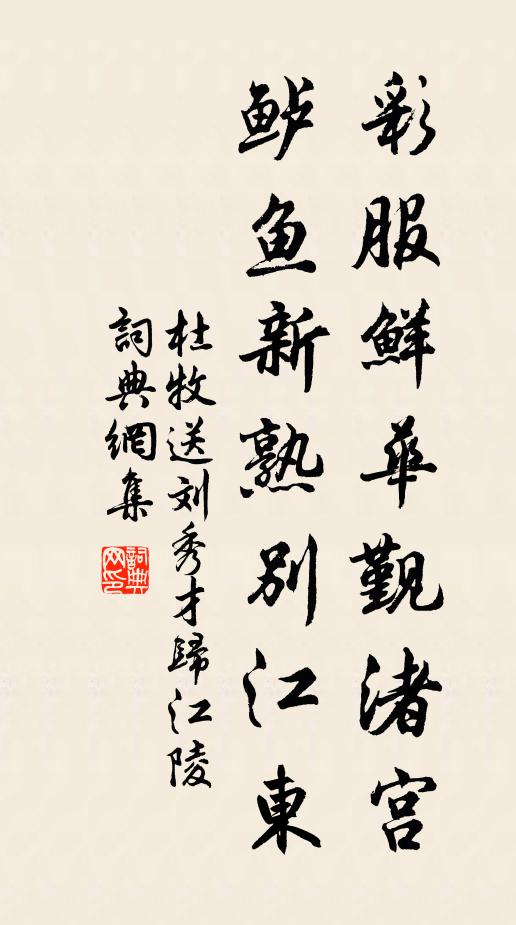 彩服鮮華觐渚宫
鲈鱼新熟别江東
杜牧送刘秀才歸江陵
詞典網集
詞典网印